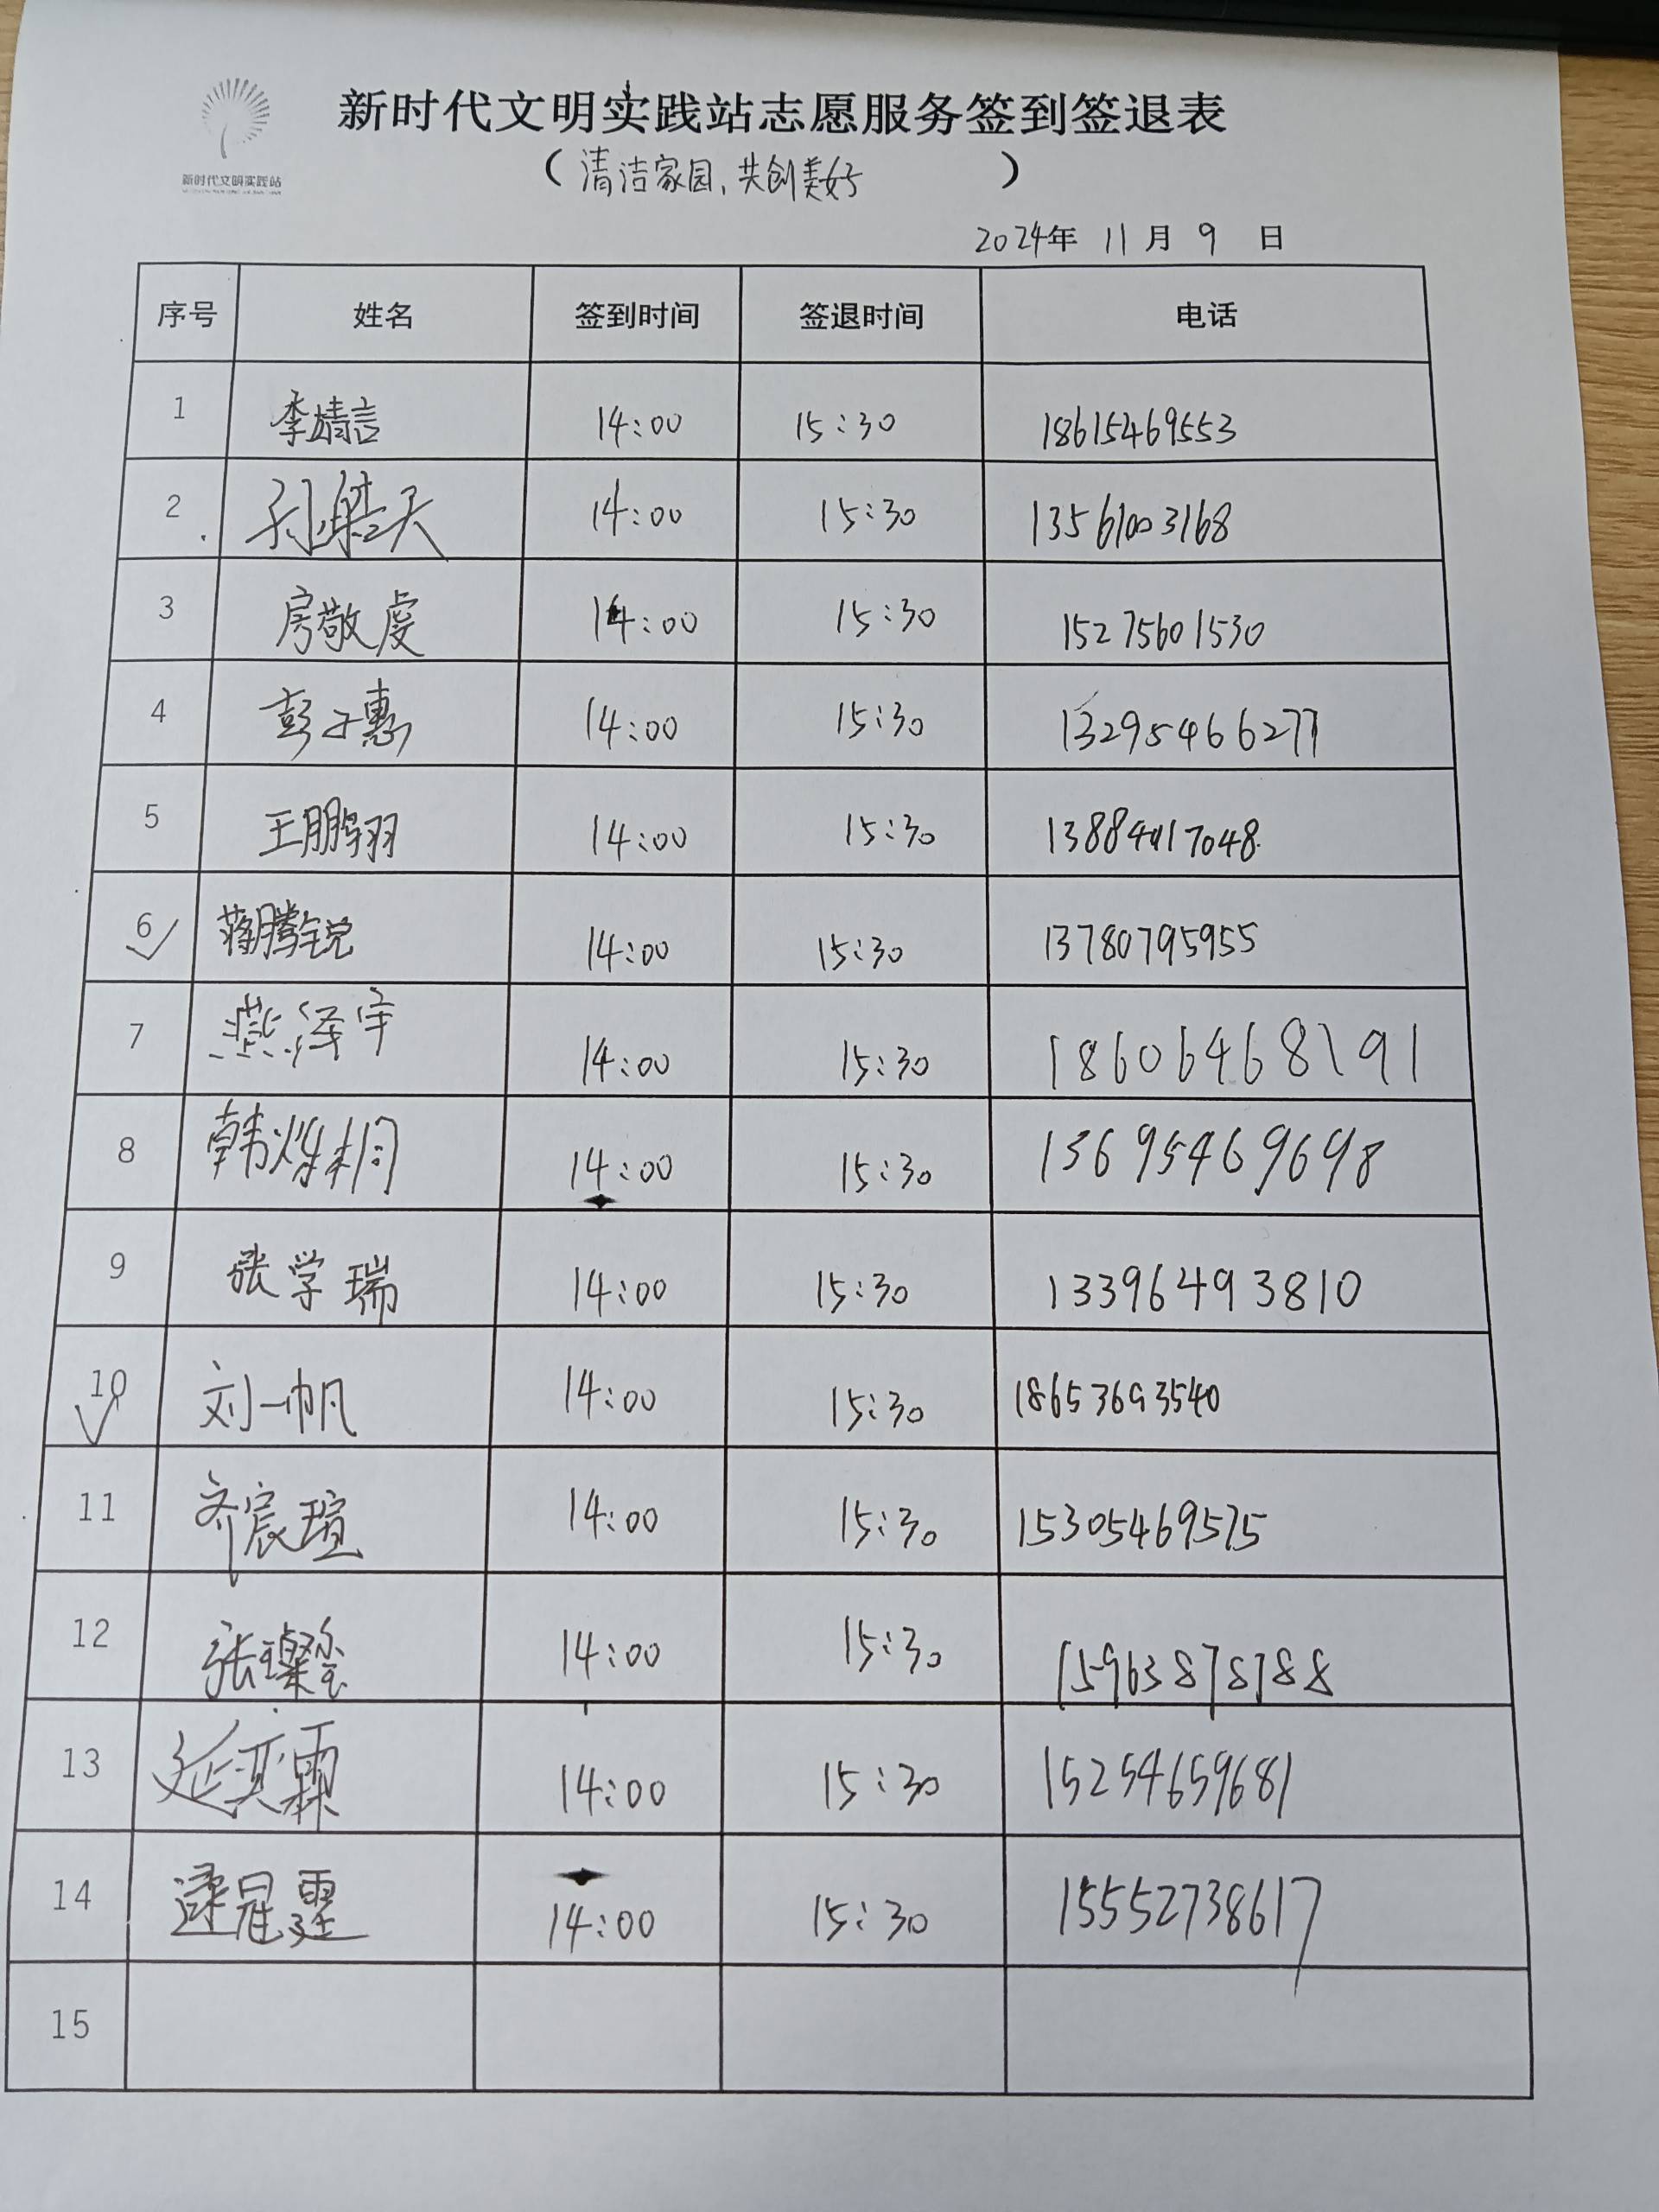 新时代文明实践站志愿服务签到签退表
新时代文明实践站
（清洁家园,共创美好）
2024年 11月 9 日
序号 姓名 签到时间 签退时间 电话
1 李婧言 14:00 15:30 18615469553
2 孙皓天 14:00 15:30 13561003168
3 房敬虔 14:00 15:30 15275601530
4 彭子惠 14:00 15:30 13295466277
5 王鹏翔 14:00 15:30
6 蒋腾锐 14:00 15:30 13780795955
7 燕泽宇 14:00 15:30 18606468191
8 韩烁桐 14:00 15:30 13695469698
9 张学瑞 14:00 15:30 13396493810
10 刘一帆 14:00 15:30 18653693540
11 齐宸瑄 14:00 15:30 15305469575
12 张璨玺 14:00 15:30 15963878788
13 延奕霖 14:00 15:30 15254659681
14 逯冠霆 14:00 15:30 15552738617
15